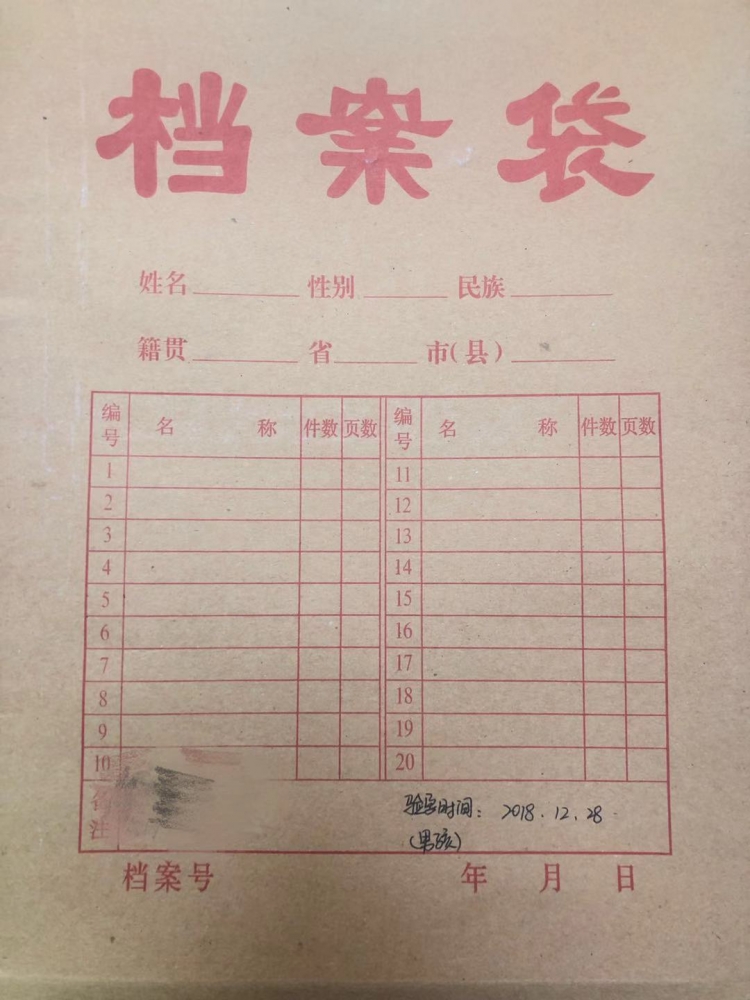 档案袋
姓名 性别 民族
籍贯 省 市(县)
编号 名称 件数 页数 编号 名称 件数 页数
1 11
2 12
3 13
4 14
5 15
6 16
7 17
8 18
9 19
10 20
备注 验孕时间: 2018.12.28.
(男孩)
档案号 年 月 日